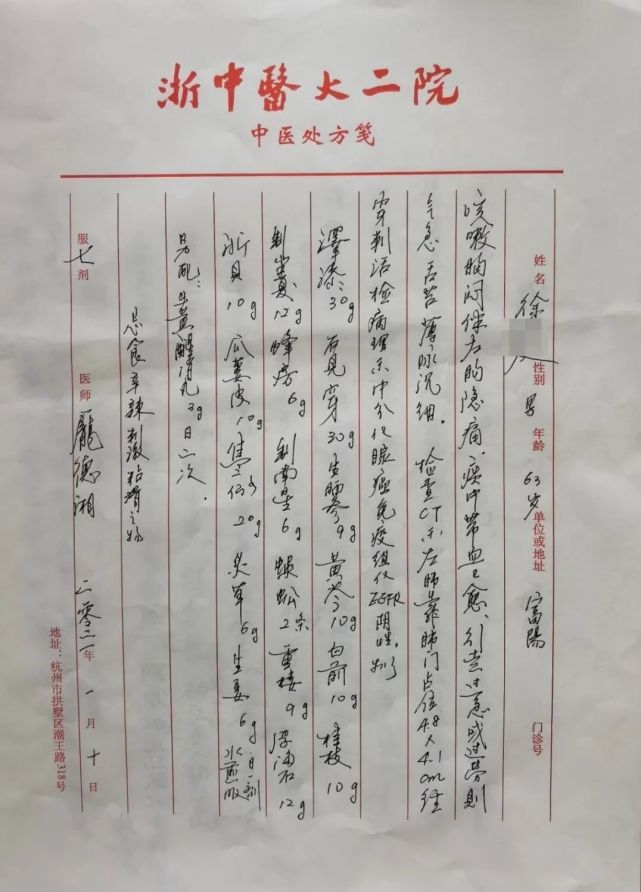 浙中醫大二院
中医处方笺
姓名 徐 性别 男 年龄 63岁 单位或地址 富陽 门诊号
咳嗽胸闷伴左胸隐痛，痰中带血已愈，引走过急或过劳则
气急，舌苔薄，脉沉细。检查CT示：左肺靠肺门占位4.8×4.1cm经
穿刺活检病理示中分化腺癌免疫组化EGFR阴性。
澤漆：30g 石见穿30g 生晒参9g 黄芩10g 白前10g 桂枝10g
制半夏12g 蜂房6g 制南星6g 蜈蚣2条 重楼9g 浮海石12g
浙贝10g 瓜蒌皮10g 20g 炙草6g 生姜6g 日一剂 水煎服
另配：醒消丸3g 日二次.
忌食辛辣刺激粘滑之物
服 七 剂 医师 龐德湘 二零二一年 一 月 十 日
地址：杭州市拱墅区潮王路318号